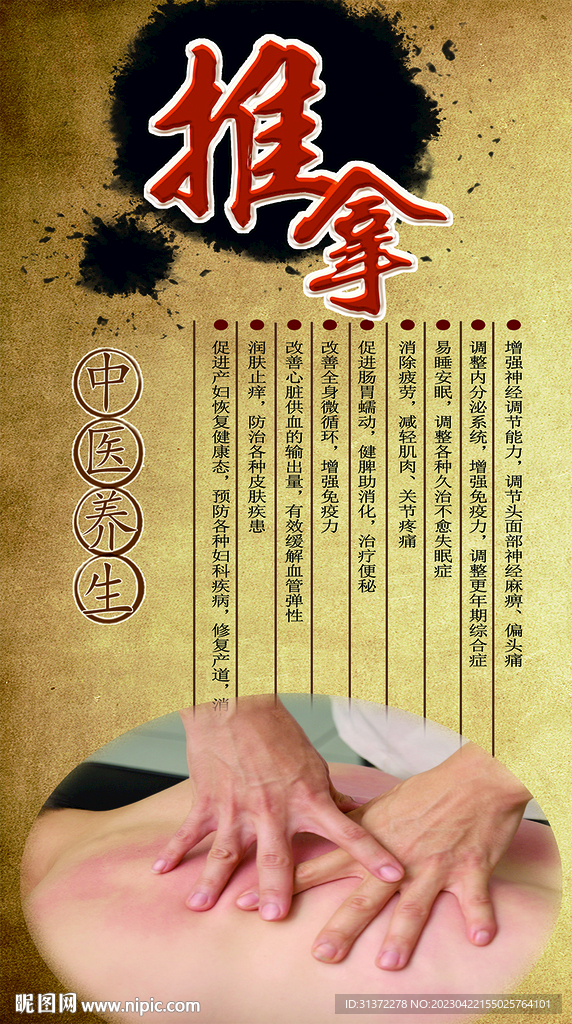 推拿
增强神经调节能力，调节头面部神经麻痹、偏头痛
调整内分泌系统，增强免疫力，调整更年期综合症
易睡安眠，调整各种久治不愈失眠症
消除疲劳，减轻肌肉、关节疼痛
促进肠胃蠕动，健脾助消化，治疗便秘
改善全身微循环，增强免疫力
改善心脏供血的输出量，有效缓解血管弹性
润肤止痒，防治各种皮肤疾患
促进产妇恢复健康态，预防各种妇科疾病，修复产道，消
中医养生
昵图网 www.nipic.com
ID:31372278 NO:20230422155025764101